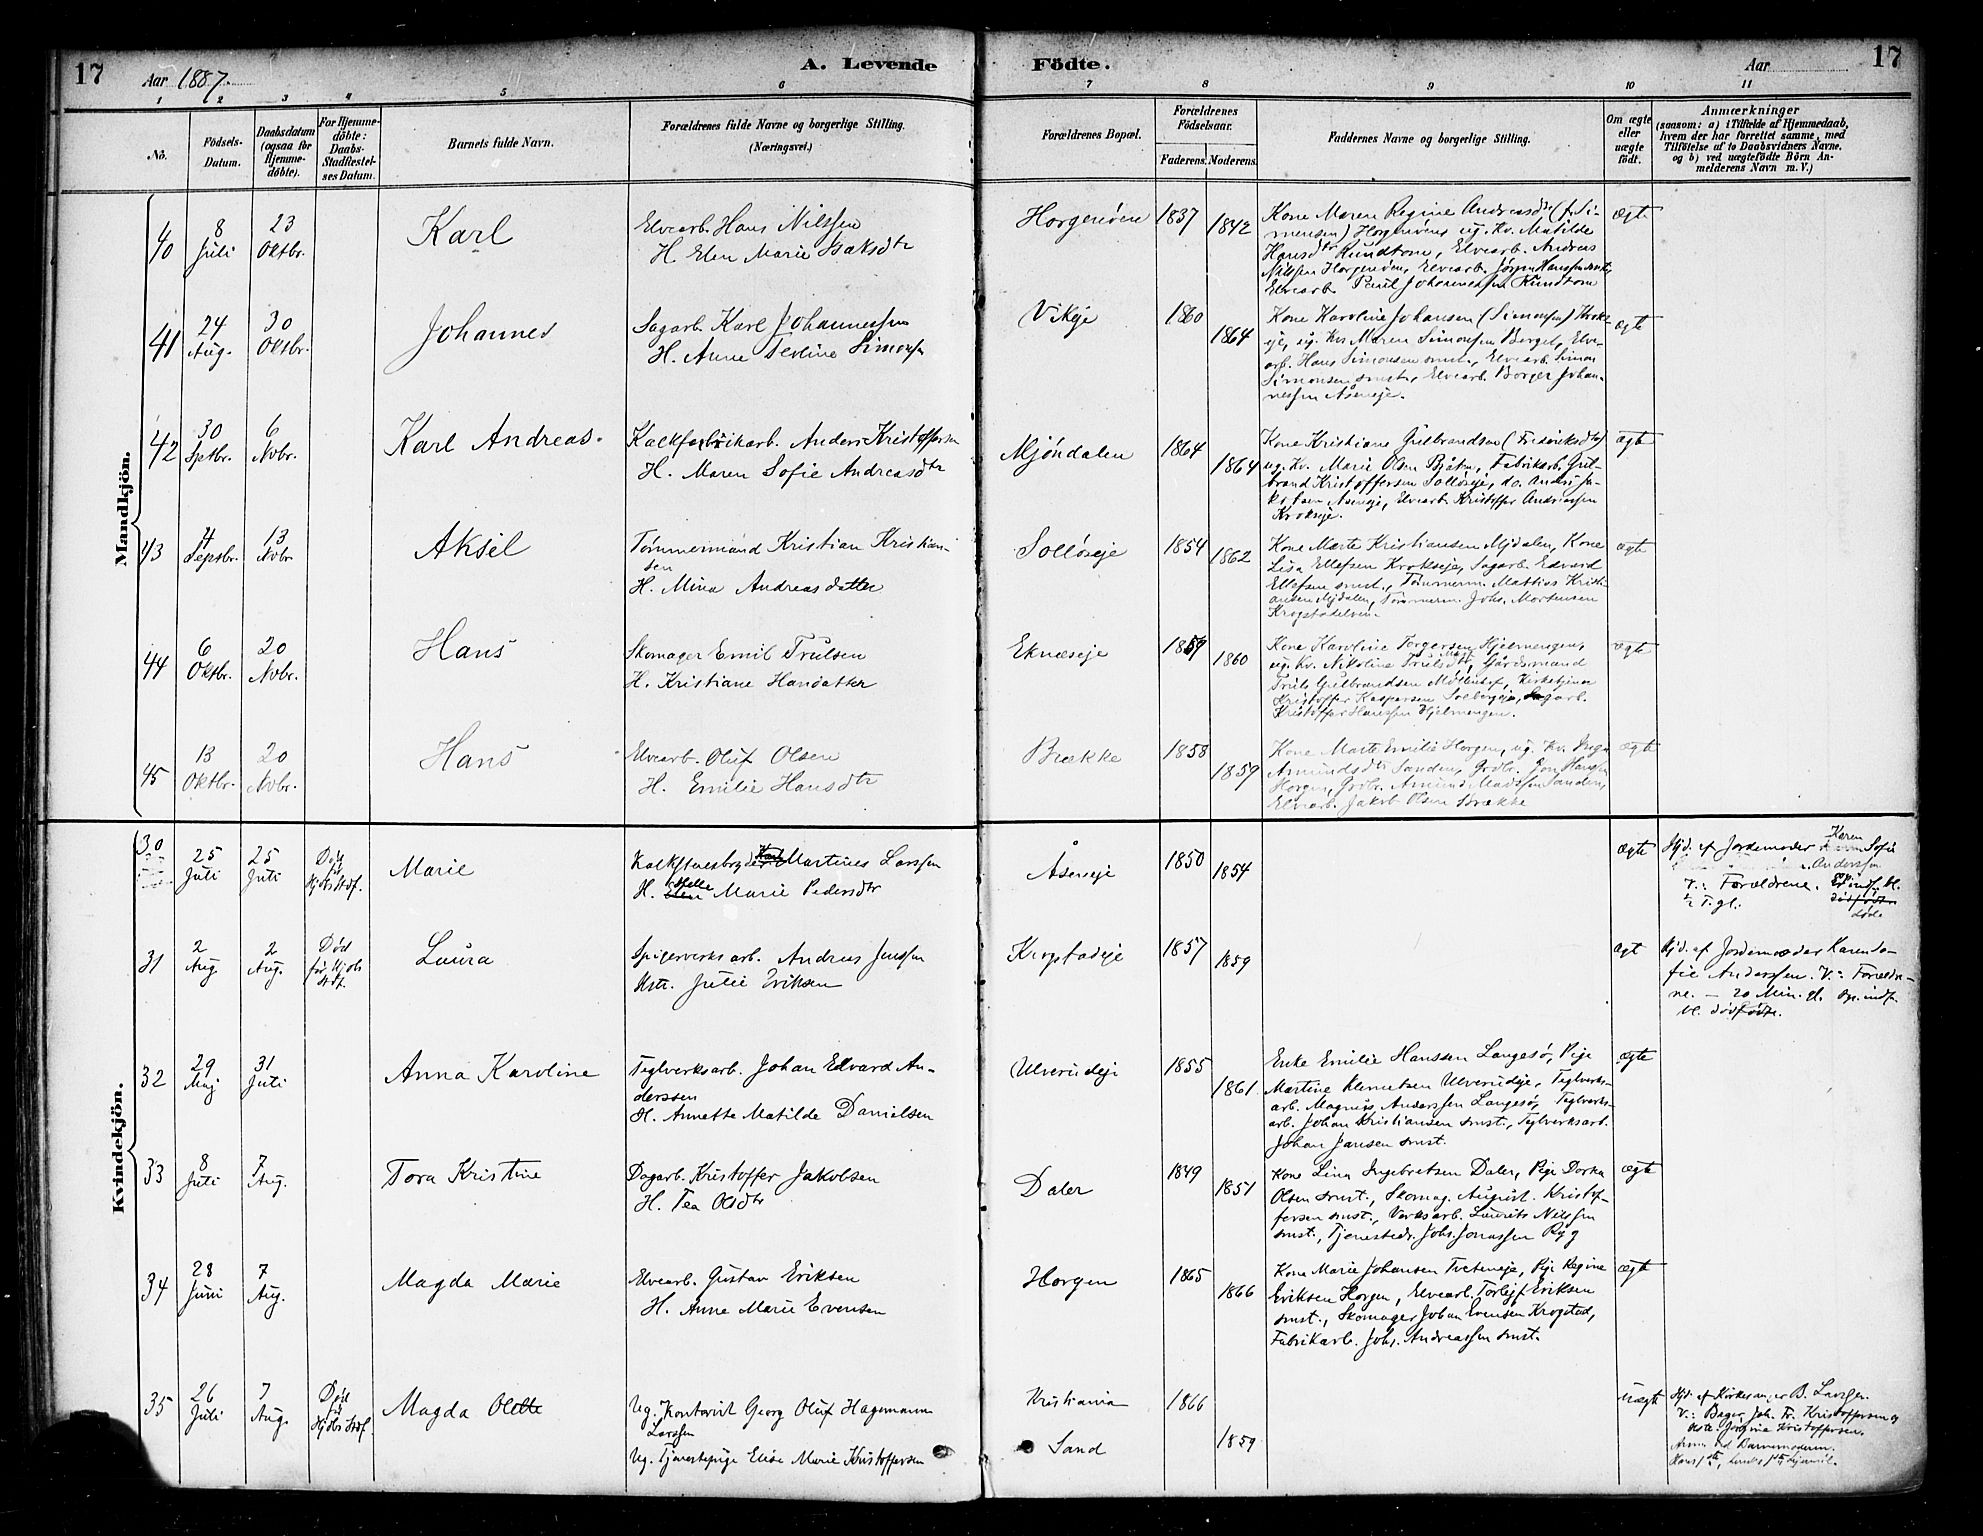 17
Aar 1887.
A. Levende Fødte.
Aar
17
1 2 3 4 5 6 7 8 9 10 11
No.
Fødsels-Datum.
Daabsdatum (ogsaa for Hjemmedøbte).
For Hjemmedøbte: Daabs-Stadfestelses Datum.
Barnets fulde Navn.
Forældrenes fulde Navne og borgerlige Stilling.
(Næringsvei.)
Forældrenes Bopæl.
Forældrenes Fødselsaar.
Faderens. Moderens.
Faddernes Navne og borgerlige Stilling.
Om ægte eller uægte født.
Anmærkninger
(saasom: a) i Tilfælde af Hjemmedaab, hvem der har forrettet samme, med Tilføielse af to Daabsvidners Navne, og b) ved uægtefødte Børn Anmelderens Navn m. V.)
Mandkjön.
40
8 Juli
23 Oktbr.
Karl
Elvearb. Hans Nilssen
H. Elen Marie Isaksdtr
Horgenøen
1837
1842
Kone Maren Regine Andreasdtr (f. Si-
mensen) Horgenøens ug. Kv. Matilde
Hansdtr Rundtom, Elvearb. Andreas
Nilssen Horgenøen, Elvearb. Jørgen Hanssen smst.,
Elvearb. Paul Johannessen Rundtom
ægte
41
24 Aug.
30 Oktbr.
Johannes
Sagarb. Karl Johannessen
H. Anne Terline Simonsen
Vikeje
1860
1864
Kone Karoline Johansen (Simonsen) Krok-
eje, ug. Kv. Maren Simonsen Berget, Elve-
arb. Hans Simonsen smst., Elvearb. Simon
Simonsen smst., Elvearb. Borger Johan-
nessen Åseneje.
ægte
42
30 Sptbr.
6 Novbr.
Karl Andreas.
Kalkfabrikarb. Anders Kristoffersen
H. Maren Sofie Andreasdtr
Mjøndalen
1864
1864
Kone Kristiane Gulbrandsen (Frederiksdtr)
ug. Kv. Marie Olsen Bjåtn, Fabrikarb. Gul-
brand Kristoffersen Solløseje, do. Anders Ja-
kobsen Åseneje, Elvearb. Kristoffer Andreassen
Krokseje.
ægte
43
4 Septbr.
13 Nvbr
Aksel
Tømmermand Kristian Kristian-
sen
H. Mina Andreasdatter
Solløseje
1854
1862
Kone Marte Kristiansen Mjdalen, Kone
Lisa Ellefsen Krokseje, Sagarb. Edvard
Ellefsen smst., Tømmerm. Mattias Kristi-
ansen Mjdalen, Tømmerm. Johs. Mortensen
Krogstadelven.
ægte
44
6 Oktbr.
20 Novbr.
Hans
Skomager Emil Trulsen
H. Kristiane Hansdatter
Eknæseje
1859
1860
Kone Karoline Torgersen Hjelmengen,
ug. Kv. Nikoline Trulsdtr, Gårdsmand
Truls Gulbrandsen Møllenhof, Kirketjener
Kristoffer Kaspersen Solbergeje, Sagarb.
Kristoffer Hanssen Hjelmengen.
ægte
45
13 Oktbr.
20 Novbr.
Hans
Elvearb. Oluf Olsen
H. Emilie Hansdtr
Brække
1858
1859
Kone Marte Emilie Horgen, ug. Kv. Inga
Amundsdtr Sanden, Grdbr. Jon Hanssen
Horgen, Grdbr. Amund Madssen Sanden,
Elvearb. Jakob Olsen Brække
ægte
Kvindekjön.
30
25 Juli
25 Juli
Død før Hjdbs Stdf.
Marie
Kalkstensbryder Martines Larssen
H. Helle Marie Pedersdtr
Åseneje
1850
1854
ægte
Hjd. af Jordemoder Karen Sofie
Anderssen
V.: Forældrene.
½ T. gl.
31
2 Aug.
2 Aug.
Død før Hjdbs Stdf.
Laura
Spigerverksarb. Andreas Jenssen
Hstr. Julie Eriksen
Krogstadeje
1857
1859
ægt
Hjd. af Jordemoder Karen So-
fie Anderssen. V.: Forældre-
ne. – 20 Min. gl. Op. indf.
bl. dødfødte.
32
29 Maj
31 Juli
Anna Karoline
Teglverksarb. Johan Edvard An-
derssen
H. Annette Matilde Danielsen
Ulverudeje
1855
1861
Enke Emilie Hanssen Langesø, Pige
Martine Klemetsen Ulverudeje, Teglverks-
arb. Magnus Anderssen Langesø, Teglverks-
arb. Johan Kristiansen smst., Teglverksarb.
Johan Jansen smst.
ægte
33
8 Juli
7 Aug.
Tora Kristine
Dagarb. Kristoffer Jakobsen
H. Tea Olsdtr
Daler
1849
1851
Kone Lina Ingebretsen Daler, Pige Dorka
Olsen smst., Skomag. August Kristof-
fersen smst., Verksarb. Laurits Nilssen
smst., Tjenestedr. Johs. Jonassen Ryg
ægte
34
28 Juni
7 Aug.
Magda Marie
Elvearb. Gustav Eriksen
H. Anne Marie Evensen
Horgen
1865
1866
Kone Marie Johansen Tveteneje, Pige Regine
Eriksen Horgen, Elvearb. Torleif Eriksen
smst., Skomager Johan Evensen Krogstad,
Fabrikarb. Johs. Andreassen smst.
ægte
35
26 Juli
7 Aug.
Død før Hjdbs Stdf.
Magda Olette
Ug. Kontorist Georg Oluf Hagemann
Larssen
Ug. Tjenestepige Elise Marie Kristoffersen
Kristiania
Sand
1866
1859
uægte
Hjd. af Kirkesanger B. Laurgen.
V.: Bager Joh. Fr. Kristoffersen og
Kste. Jørgine Kristoffersen.
Anm. ved Barnemoderen.